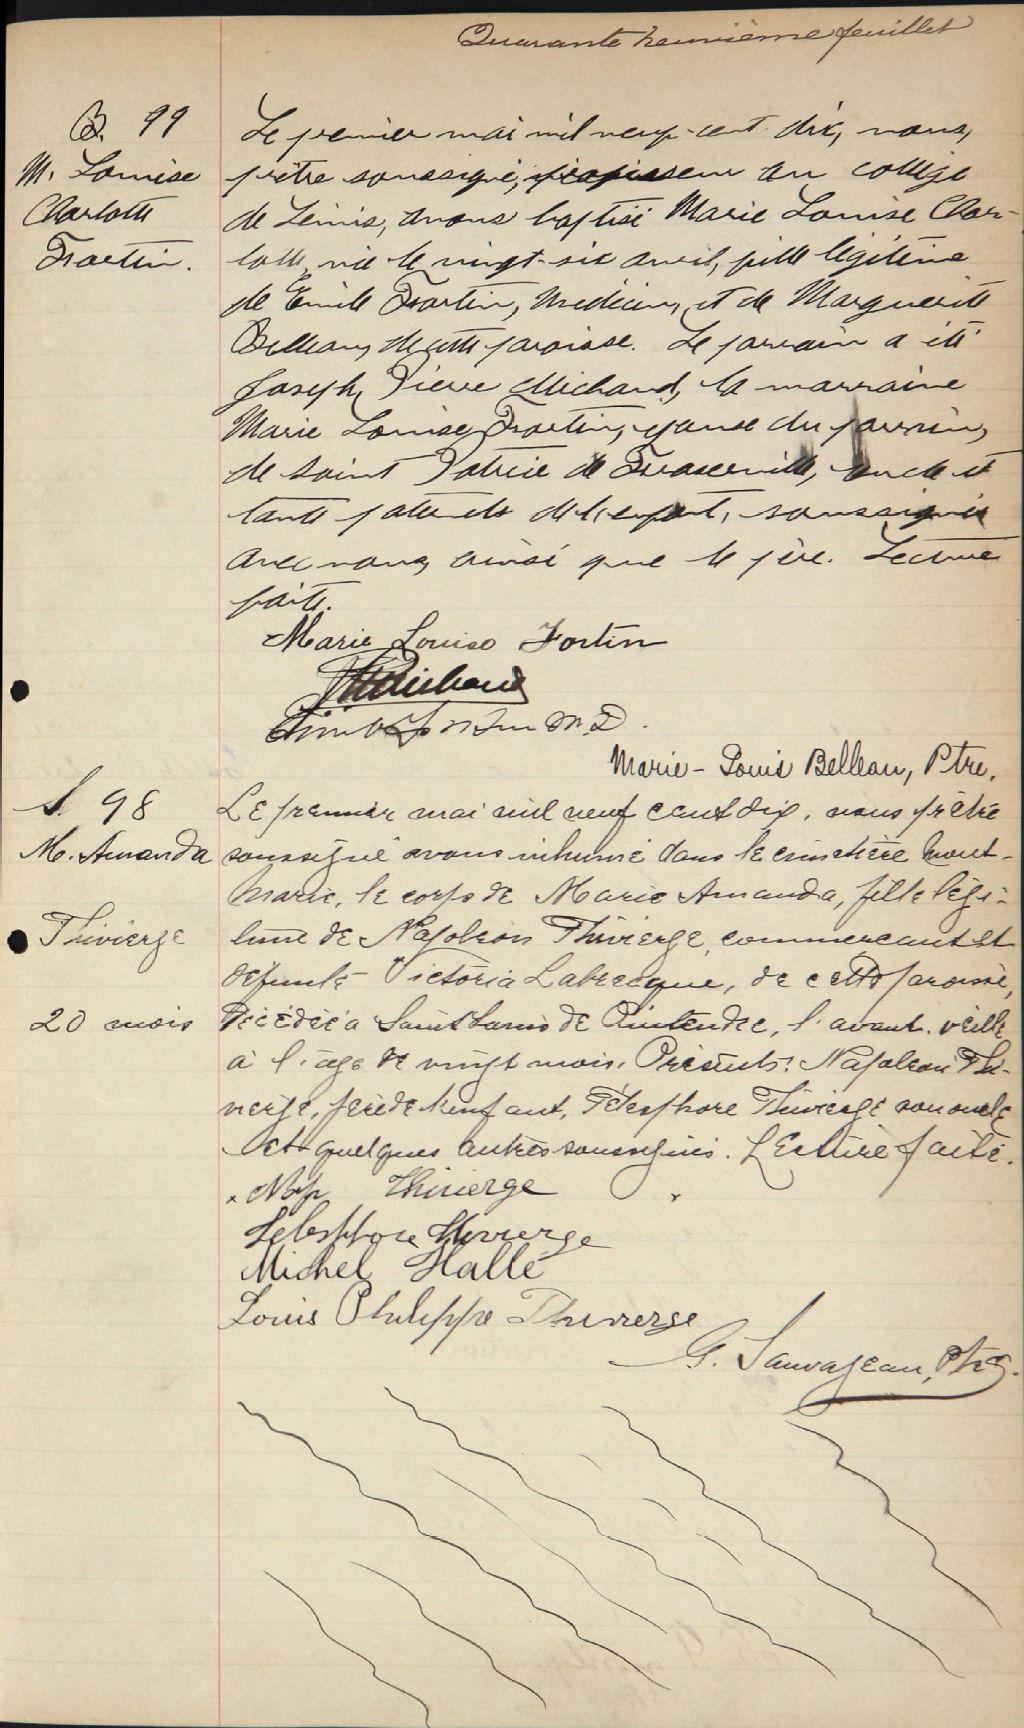 Quarante neuvième feuillet
B. 99
M. Louise
Charlotte
Fortin.
Le premier mai mil neuf-cent dix, nous,
prêtre soussigné, professeur au collège
de Lévis, avons baptisé Marie Louise Char-
lotte, née le vingt-six avril, fille légitime
de Emile Fortin, médecin, et de Marguerite
Belleau, de cette paroisse. Le parrain a été
Joseph Pierre Michaud, la marraine
Marie Louise Fortin, épouse du parrain,
de Saint Patrice de Fraserville, oncle et
tante paternels de l'enfant, soussignés
avec nous, ainsi que le père. Lecture
faite.
Marie Louise Fortin
Michaud
Emile Fortin M.D.
Marie-Louis Belleau, Ptre.
S. 98
M. Amanda
Thivierge
20 mois
Le premier mai mil neuf cent dix, nous prêtre
soussigné avons inhumé dans le cimetière Mont-
Marie, le corps de Marie Amanda, fille légi-
time de Napoléon Thivierge, commerçant et
défunte Victoria Labrecque, de cette paroisse,
décédée à Saint Louis de Pintendre, l'avant-veille
à l'âge de vingt mois. Présents: Napoléon Thi-
vierge, père de l'enfant, Télesphore Thivierge son oncle
et quelques autres soussignés. Lecture faite.
Nap Thivierge
Telesphore Thivierge
Michel Hallé
Louis Philippe Thivierge
G. Sauvageau, Ptre.